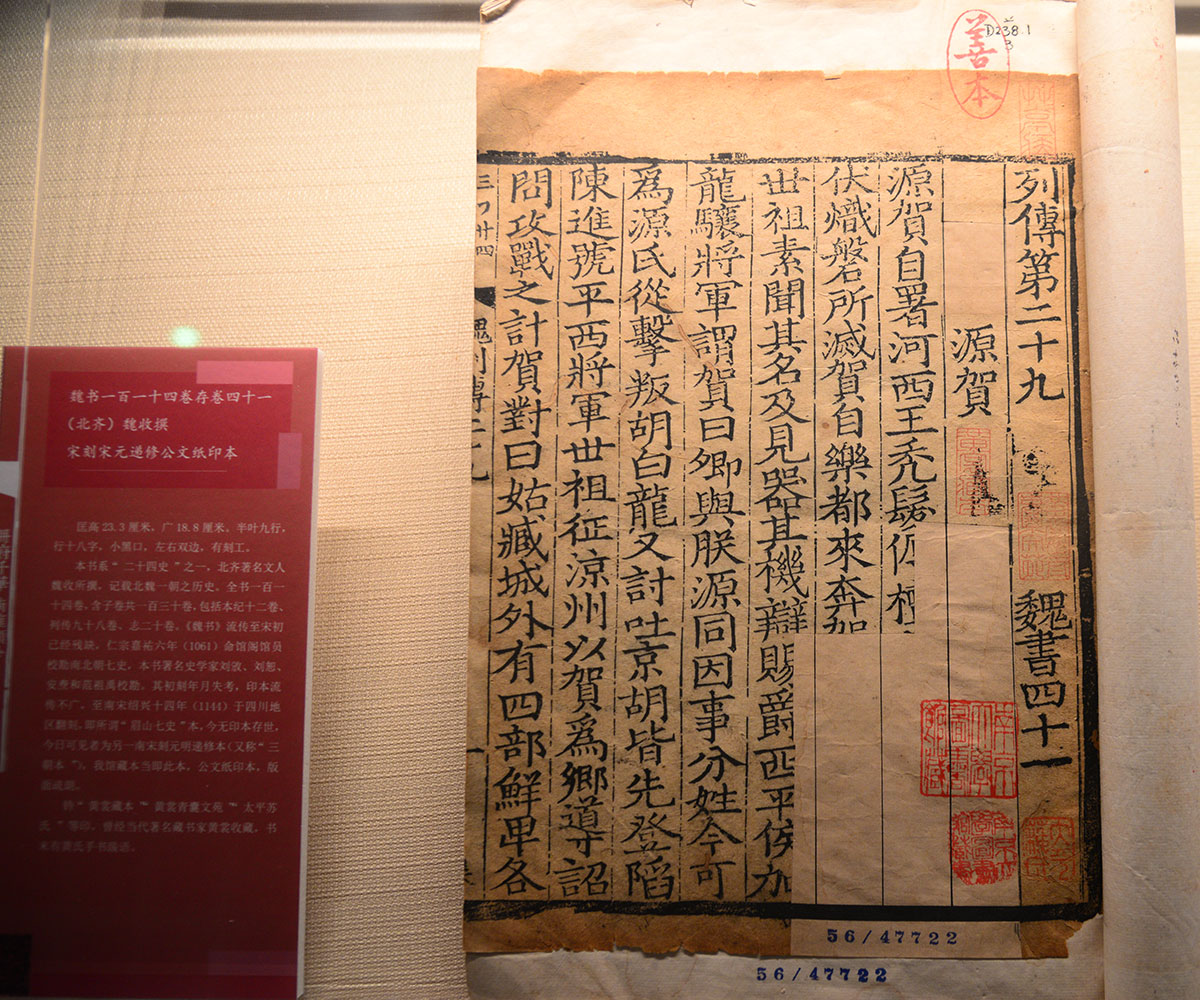 魏书一百一十四卷存卷四十一
（北齐）魏收撰
宋刻宋元递修公文纸印本
匡高23.3厘米，广18.8厘米。半叶九行，
行十八字，小黑口，左右双边，有刻工。
本书系“二十四史”之一，北齐著名文人
魏收所撰，记载北魏一朝之历史。全书一百一
十四卷，含子卷共一百三十卷，包括本纪十二卷、
列传九十八卷、志二十卷。《魏书》流传至宋初
已经残缺，仁宗嘉祐六年（1061）命馆阁馆员
校勘南北朝七史，本书著名史学家刘攽、刘恕、
安焘和范祖禹校勘。其初刻年月失考，印本流
传不广。至南宋绍兴十四年（1144）于四川地
区翻刻，即所谓“眉山七史”本，今无印本存世，
今日可见者为另一南宋刻元明递修本（又称“三
朝本”）。我馆藏本当即此本，公文纸印本，版
面疏朗。
钤“黄裳藏本”“黄裳青囊文苑”“太平苏
氏”等印。曾经当代著名藏书家黄裳收藏，书
末有黄氏手书题语。
善本
D238.1
3
列傳第二十九 魏書四十一
源賀
源賀自署河西王秃髮傉檀
伏熾磐所滅賀自樂都來奔
世祖素聞其名及見器其機辯賜爵西平侯加
龍驤將軍謂賀曰卿與朕源同因事分姓今可
爲源氏從擊叛胡白龍又討吐京胡皆先登陷
陳進號平西將軍世祖征涼州以賀爲鄉導詔
問攻戰之計賀對曰姑臧城外有四部鮮卑各
魏列傳二十九
56/47722
56/47722